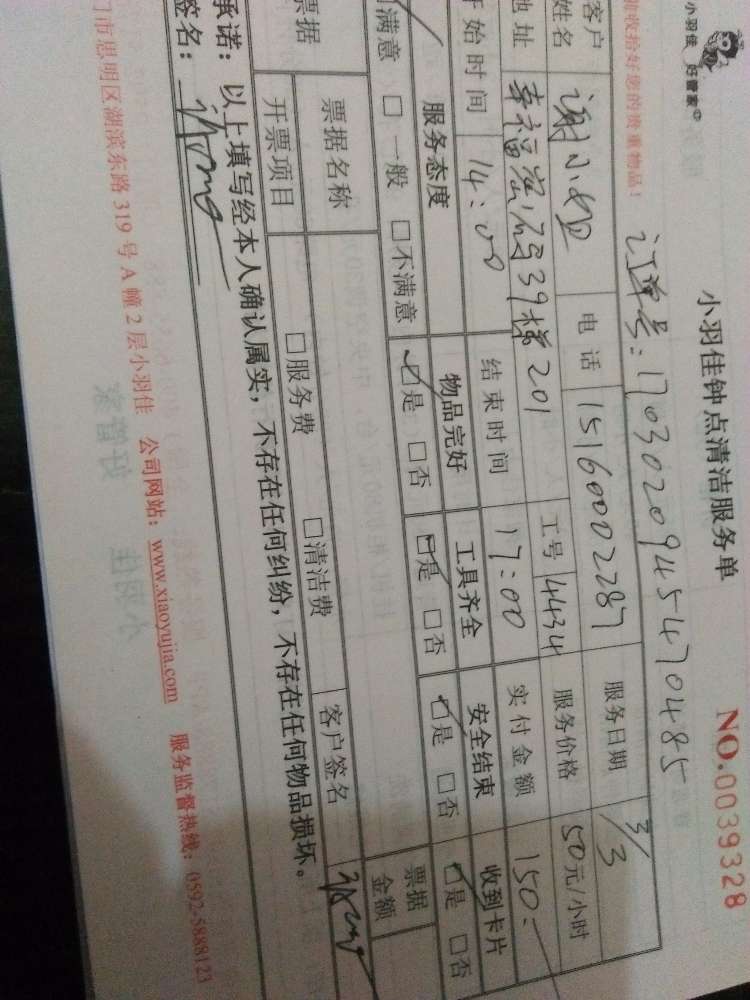 小羽佳 好管家
小羽佳钟点清洁服务单
NO.0039328
收拾好您的贵重物品!
订单号:17030209454710485
客户姓名 谢小姐 电话 15160002287 服务日期 3/3
地址 幸福密码39梯201 工号 4434 服务价格 50元/小时
开始时间 14:00 结束时间 17:00 实付金额 150-
服务态度 物品完好 工具齐全 安全结束 收到卡片
满意 □一般 □不满意 ☑是 □否 ☑是 □否 ☑是 □否 ☑是 □否
票据 票据名称 票据金额
开票项目 □服务费 □清洁费 客户签名
承诺:以上填写经本人确认属实,不存在任何纠纷,不存在任何物品损坏。
签名:
门市思明区湖滨东路319号A幢2层小羽佳 公司网站:www.xiaoyujia.com 服务监督热线:0592-5888123